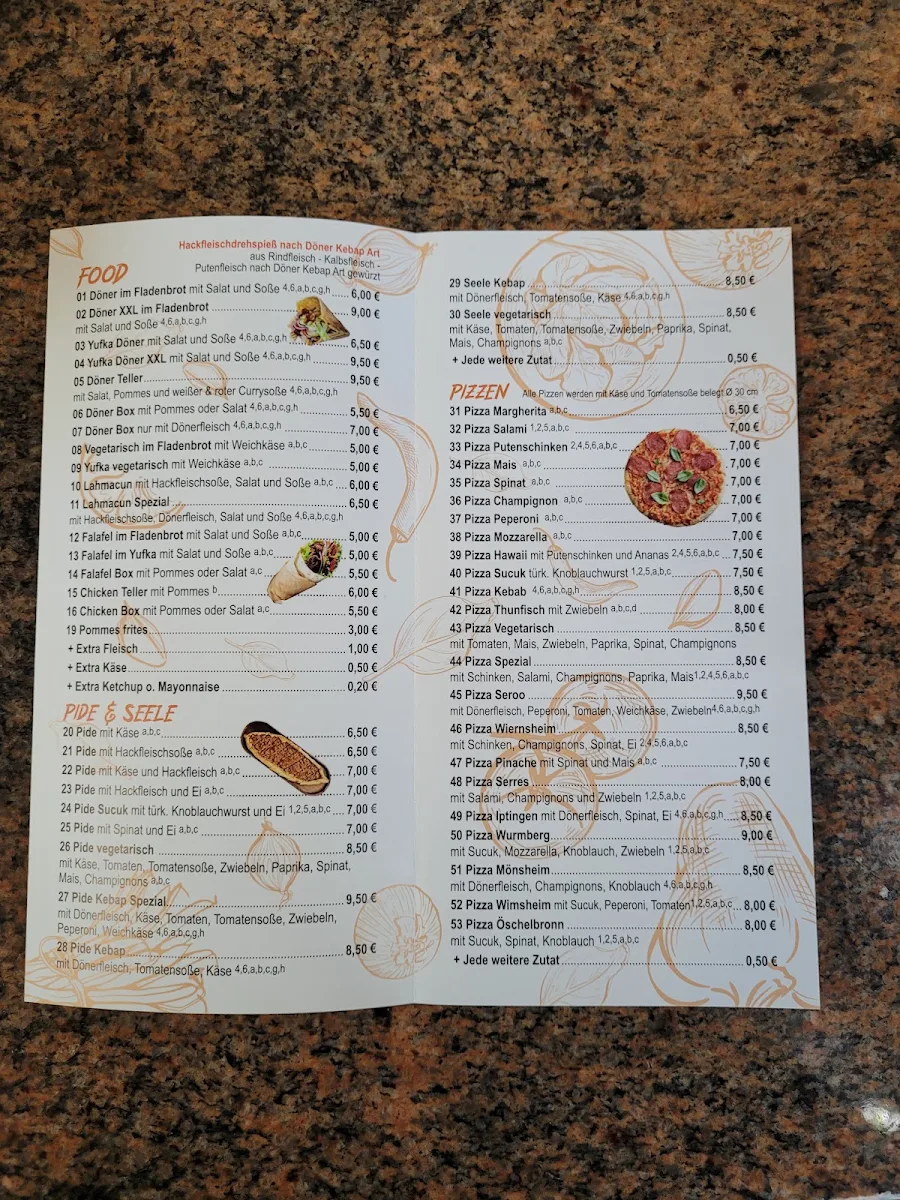 Hackfleischdrehspieß nach Döner Kebap Art
aus Rindfleisch - Kalbsfleisch -
Putenfleisch nach Döner Kebap Art gewürzt
FOOD
01 Döner im Fladenbrot mit Salat und Soße 4,6,a,b,c,g,h .... 6,00 €
02 Döner XXL im Fladenbrot .... 9,00 €
mit Salat und Soße 4,6,a,b,c,g,h
03 Yufka Döner mit Salat und Soße 4,6,a,b,c,g,h .... 6,50 €
04 Yufka Döner XXL mit Salat und Soße 4,6,a,b,c,g,h .... 9,50 €
05 Döner Teller .... 9,50 €
mit Salat, Pommes und weißer & roter Currysoße 4,6,a,b,c,g,h
06 Döner Box mit Pommes oder Salat 4,6,a,b,c,g,h .... 5,50 €
07 Döner Box nur mit Dönerfleisch 4,6,a,b,c,g,h .... 7,00 €
08 Vegetarisch im Fladenbrot mit Weichkäse a,b,c .... 5,00 €
09 Yufka vegetarisch mit Weichkäse a,b,c .... 5,00 €
10 Lahmacun mit Hackfleischsoße, Salat und Soße a,b,c .... 6,00 €
11 Lahmacun Spezial .... 6,50 €
mit Hackfleischsoße, Dönerfleisch, Salat und Soße 4,6,a,b,c,g,h
12 Falafel im Fladenbrot mit Salat und Soße a,b,c .... 5,00 €
13 Falafel im Yufka mit Salat und Soße a,b,c .... 5,00 €
14 Falafel Box mit Pommes oder Salat a,c .... 5,50 €
15 Chicken Teller mit Pommes b .... 6,00 €
16 Chicken Box mit Pommes oder Salat a,c .... 5,50 €
19 Pommes frites .... 3,00 €
+ Extra Fleisch .... 1,00 €
+ Extra Käse .... 0,50 €
+ Extra Ketchup o. Mayonnaise .... 0,20 €
PIDE & SEELE
20 Pide mit Käse a,b,c .... 6,50 €
21 Pide mit Hackfleischsoße a,b,c .... 6,50 €
22 Pide mit Käse und Hackfleisch a,b,c .... 7,00 €
23 Pide mit Hackfleisch und Ei a,b,c .... 7,00 €
24 Pide Sucuk mit türk. Knoblauchwurst und Ei 1,2,5,a,b,c .... 7,00 €
25 Pide mit Spinat und Ei a,b,c .... 7,00 €
26 Pide vegetarisch .... 8,50 €
mit Käse, Tomaten, Tomatensoße, Zwiebeln, Paprika, Spinat,
Mais, Champignons a,b,c
27 Pide Kebap Spezial .... 9,50 €
mit Dönerfleisch, Käse, Tomaten, Tomatensoße, Zwiebeln,
Peperoni, Weichkäse 4,6,a,b,c,g,h
28 Pide Kebap .... 8,50 €
mit Dönerfleisch, Tomatensoße, Käse 4,6,a,b,c,g,h
29 Seele Kebap .... 8,50 €
mit Dönerfleisch, Tomatensoße, Käse 4,6,a,b,c,g,h
30 Seele vegetarisch .... 8,50 €
mit Käse, Tomaten, Tomatensoße, Zwiebeln, Paprika, Spinat,
Mais, Champignons a,b,c
+ Jede weitere Zutat .... 0,50 €
PIZZEN Alle Pizzen werden mit Käse und Tomatensoße belegt Ø 30 cm
31 Pizza Margherita a,b,c .... 6,50 €
32 Pizza Salami 1,2,5,a,b,c .... 7,00 €
33 Pizza Putenschinken 2,4,5,6,a,b,c .... 7,00 €
34 Pizza Mais a,b,c .... 7,00 €
35 Pizza Spinat a,b,c .... 7,00 €
36 Pizza Champignon a,b,c .... 7,00 €
37 Pizza Peperoni a,b,c .... 7,00 €
38 Pizza Mozzarella a,b,c .... 7,00 €
39 Pizza Hawaii mit Putenschinken und Ananas 2,4,5,6,a,b,c .... 7,50 €
40 Pizza Sucuk türk. Knoblauchwurst 1,2,5,a,b,c .... 7,50 €
41 Pizza Kebab 4,6,a,b,c,g,h .... 8,50 €
42 Pizza Thunfisch mit Zwiebeln a,b,c,d .... 8,00 €
43 Pizza Vegetarisch .... 8,50 €
mit Tomaten, Mais, Zwiebeln, Paprika, Spinat, Champignons
44 Pizza Spezial .... 8,50 €
mit Schinken, Salami, Champignons, Paprika, Mais 1,2,4,5,6,a,b,c
45 Pizza Seroo .... 9,50 €
mit Dönerfleisch, Peperoni, Tomaten, Weichkäse, Zwiebeln 4,6,a,b,c,g,h
46 Pizza Wiernsheim .... 8,50 €
mit Schinken, Champignons, Spinat, Ei 2,4,5,6,a,b,c
47 Pizza Pinache mit Spinat und Mais a,b,c .... 7,50 €
48 Pizza Serres .... 8,00 €
mit Salami, Champignons und Zwiebeln 1,2,5,a,b,c
49 Pizza Iptingen mit Dönerfleisch, Spinat, Ei 4,6,a,b,c,g,h .... 8,50 €
50 Pizza Wurmberg .... 9,00 €
mit Sucuk, Mozzarella, Knoblauch, Zwiebeln 1,2,5,a,b,c
51 Pizza Mönsheim .... 8,50 €
mit Dönerfleisch, Champignons, Knoblauch 4,6,a,b,c,g,h
52 Pizza Wimsheim mit Sucuk, Peperoni, Tomaten 1,2,5,a,b,c .... 8,00 €
53 Pizza Öschelbronn .... 8,00 €
mit Sucuk, Spinat, Knoblauch 1,2,5,a,b,c
+ Jede weitere Zutat .... 0,50 €